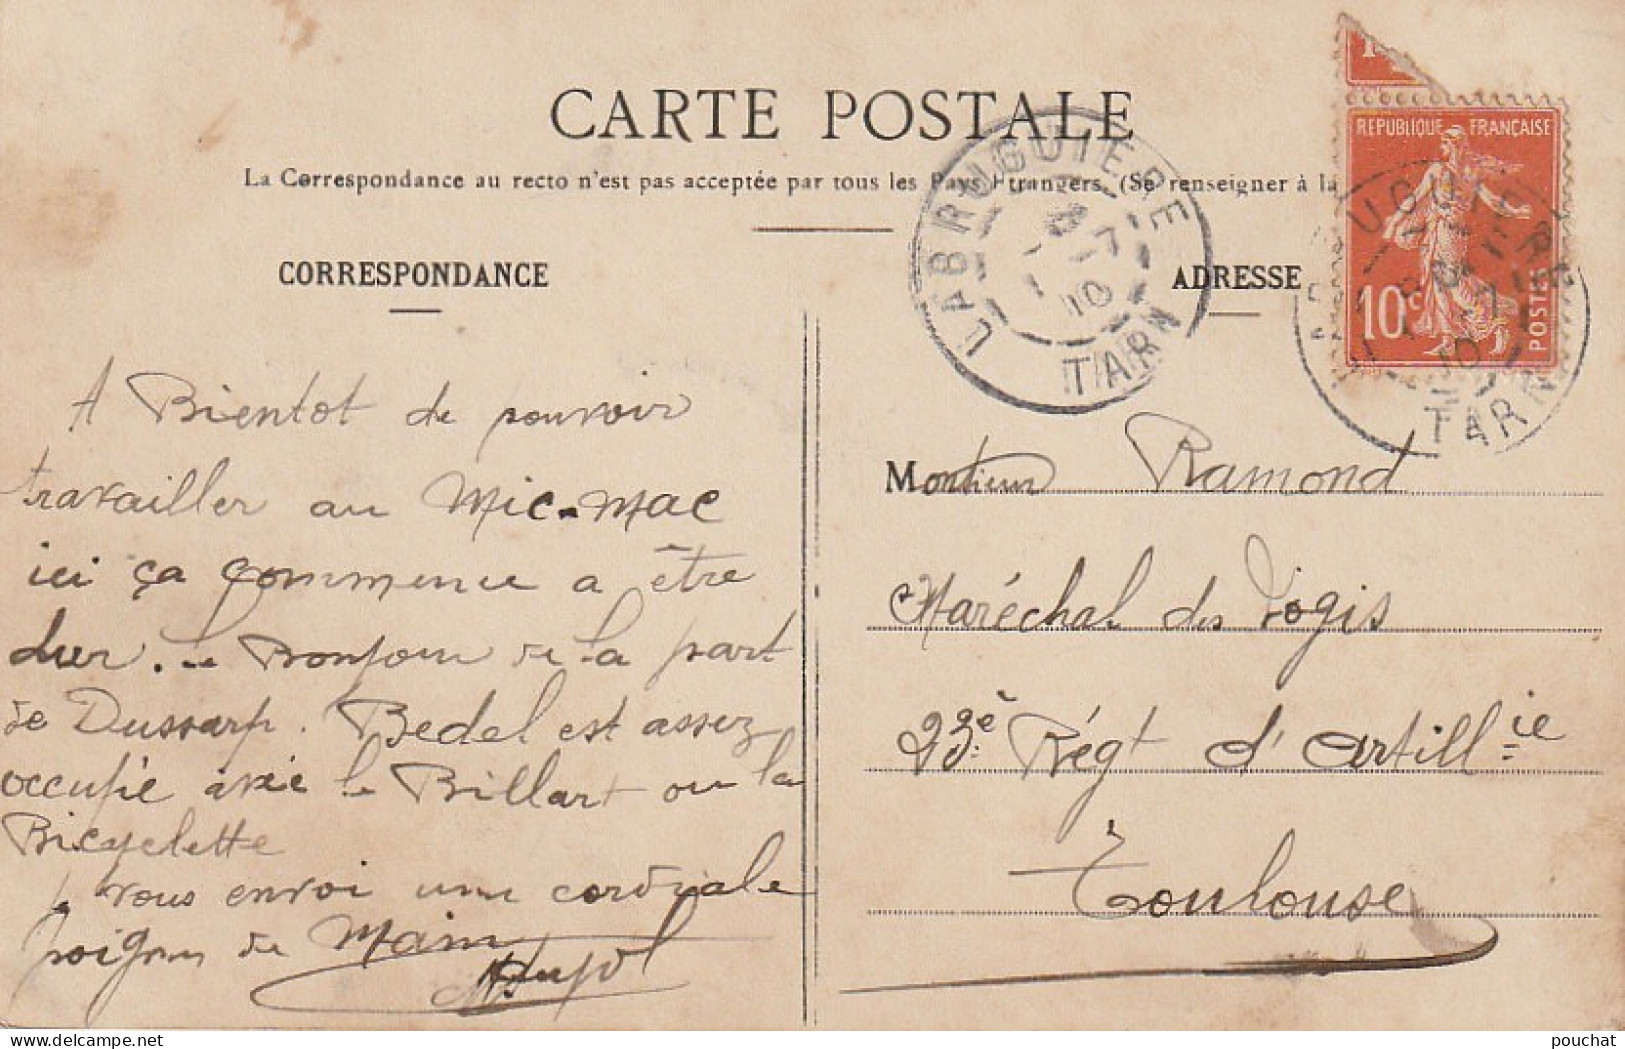 CARTE POSTALE
La Correspondance au recto n'est pas acceptée par tous les Pays Etrangers. (Se renseigner à la
CORRESPONDANCE
A Bientot de pouvoir
travailler au Mic-Mac
ici ça commence a être
dur. le Bonjour de la part
de Dussarp. Bedel est assez
occupé avec le Billart ou la
Bicyclette
je vous envoi une cordiale
poignee de Main
Pujol
LABRUGUIERE
7
10
TARN
ADRESSE
REPUBLIQUE FRANÇAISE
10c
POSTES
TARN
Monsieur Ramond
Maréchal des logis
23e Régt d'Artillie
Toulouse
pouchat